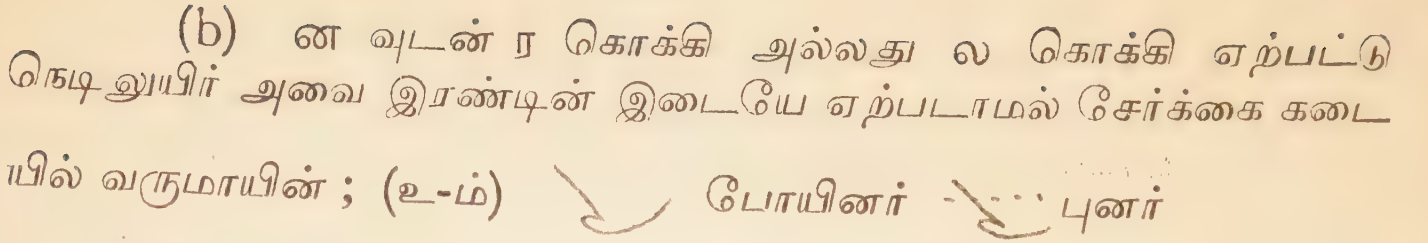 (b) ன வுடன் ர கொக்கி அல்லது ல கொக்கி ஏற்பட்டு
நெடிலுயிர் அவை இரண்டின் இடையே ஏற்படாமல் சேர்க்கை கடை
யில் வருமாயின் ; (உ-ம்) போயினர் புனர்